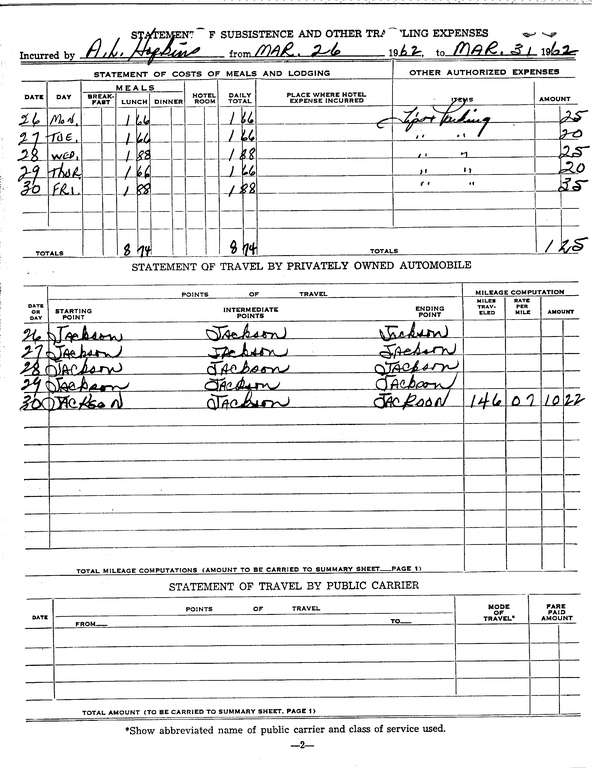 STATEMENT OF SUBSISTENCE AND OTHER TRAVELING EXPENSES
Incurred by A.L. Hopkins from MAR. 26 1962, to MAR. 31 1962
STATEMENT OF COSTS OF MEALS AND LODGING OTHER AUTHORIZED EXPENSES
DATE DAY MEALS BREAK-FAST LUNCH DINNER HOTEL ROOM DAILY TOTAL PLACE WHERE HOTEL EXPENSE INCURRED ITEMS AMOUNT
26 MON. 1 66 1 66 Tips & Parking 25
27 TUE. 1 66 1 66 " " 20
28 WED. 1 88 1 88 " " 25
29 THUR 1 66 1 66 " " 20
30 FRI. 1 88 1 88 " " 35
TOTALS 8 74 8 74 TOTALS 1 25
STATEMENT OF TRAVEL BY PRIVATELY OWNED AUTOMOBILE
POINTS OF TRAVEL MILEAGE COMPUTATION
DATE OR DAY STARTING POINT INTERMEDIATE POINTS ENDING POINT MILES TRAV-ELED RATE PER MILE AMOUNT
26 Jackson Jackson Jackson
27 Jackson Jackson Jackson
28 Jackson Jackson Jackson
29 Jackson Jackson Jackson
30 Jackson Jackson Jackson 146 07 10 22
TOTAL MILEAGE COMPUTATIONS (AMOUNT TO BE CARRIED TO SUMMARY SHEET—PAGE 1)
STATEMENT OF TRAVEL BY PUBLIC CARRIER
DATE POINTS OF TRAVEL MODE OF TRAVEL* FARE PAID AMOUNT
FROM— TO—
TOTAL AMOUNT (TO BE CARRIED TO SUMMARY SHEET, PAGE 1)
*Show abbreviated name of public carrier and class of service used.
—2—